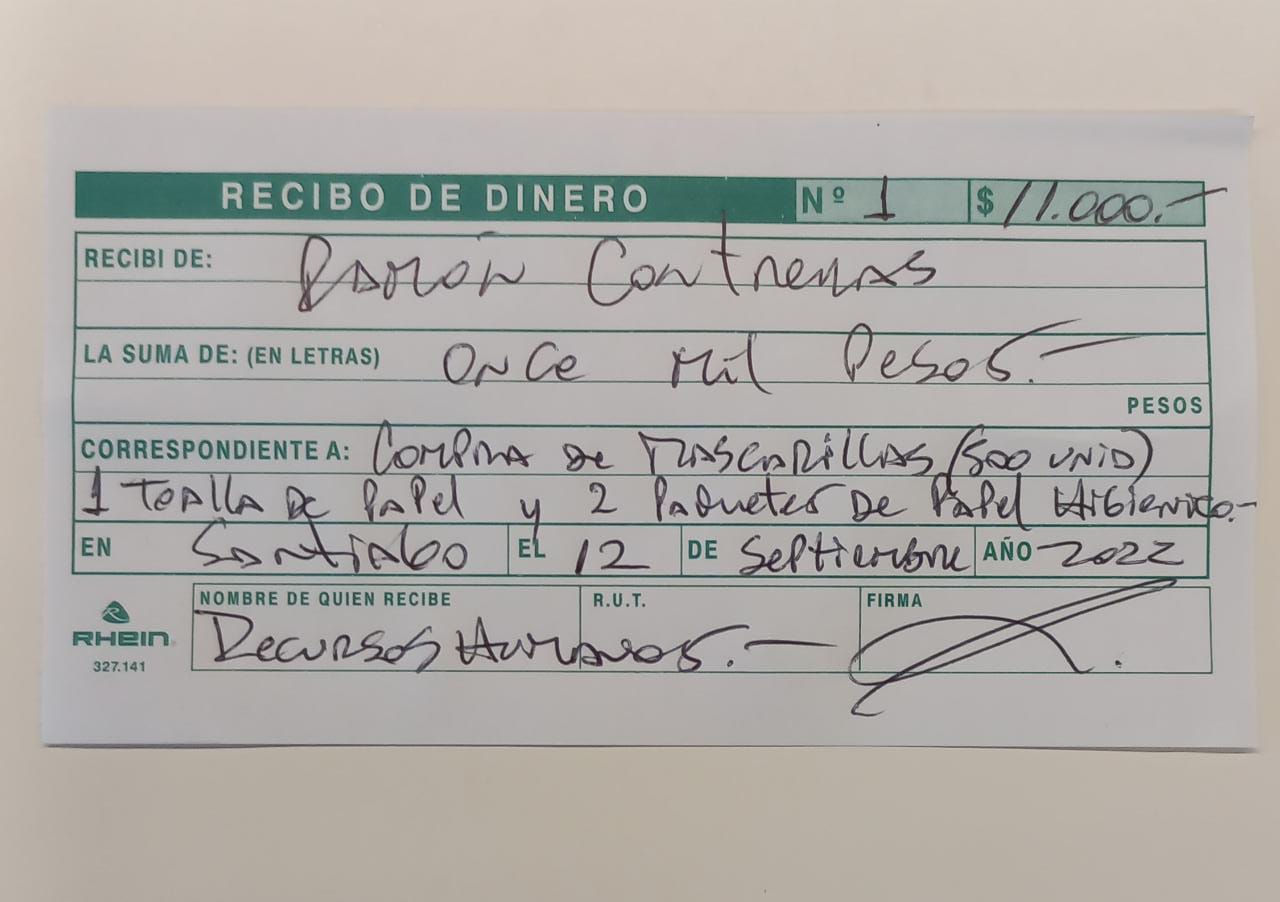 RECIBO DE DINERO Nº 1 $ 11.000.-
RECIBI DE: Ramón Contreras
LA SUMA DE: (EN LETRAS) Once Mil Pesos.-
PESOS
CORRESPONDIENTE A: Compra de Mascarillas (500 unid)
1 Toalla de Papel y 2 Paquetes de Papel Higienico.-
EN Santiago EL 12 DE Septiembre AÑO 2022
NOMBRE DE QUIEN RECIBE R.U.T. FIRMA
Recursos Humanos.-
RHEIN
327.141